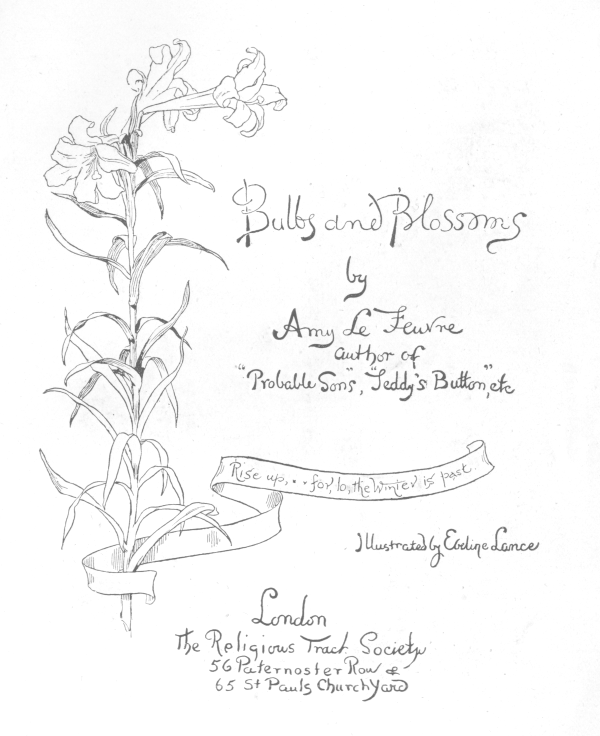 Bulbs and Blossoms
by
Amy Le Feuvre
author of
"Probable Sons", "Teddy's Button", etc
Rise up, . . for, lo, the Winter is past.
Illustrated by Eveline Lance
London
The Religious Tract Society
56 Paternoster Row &
65 St Pauls ChurchYard